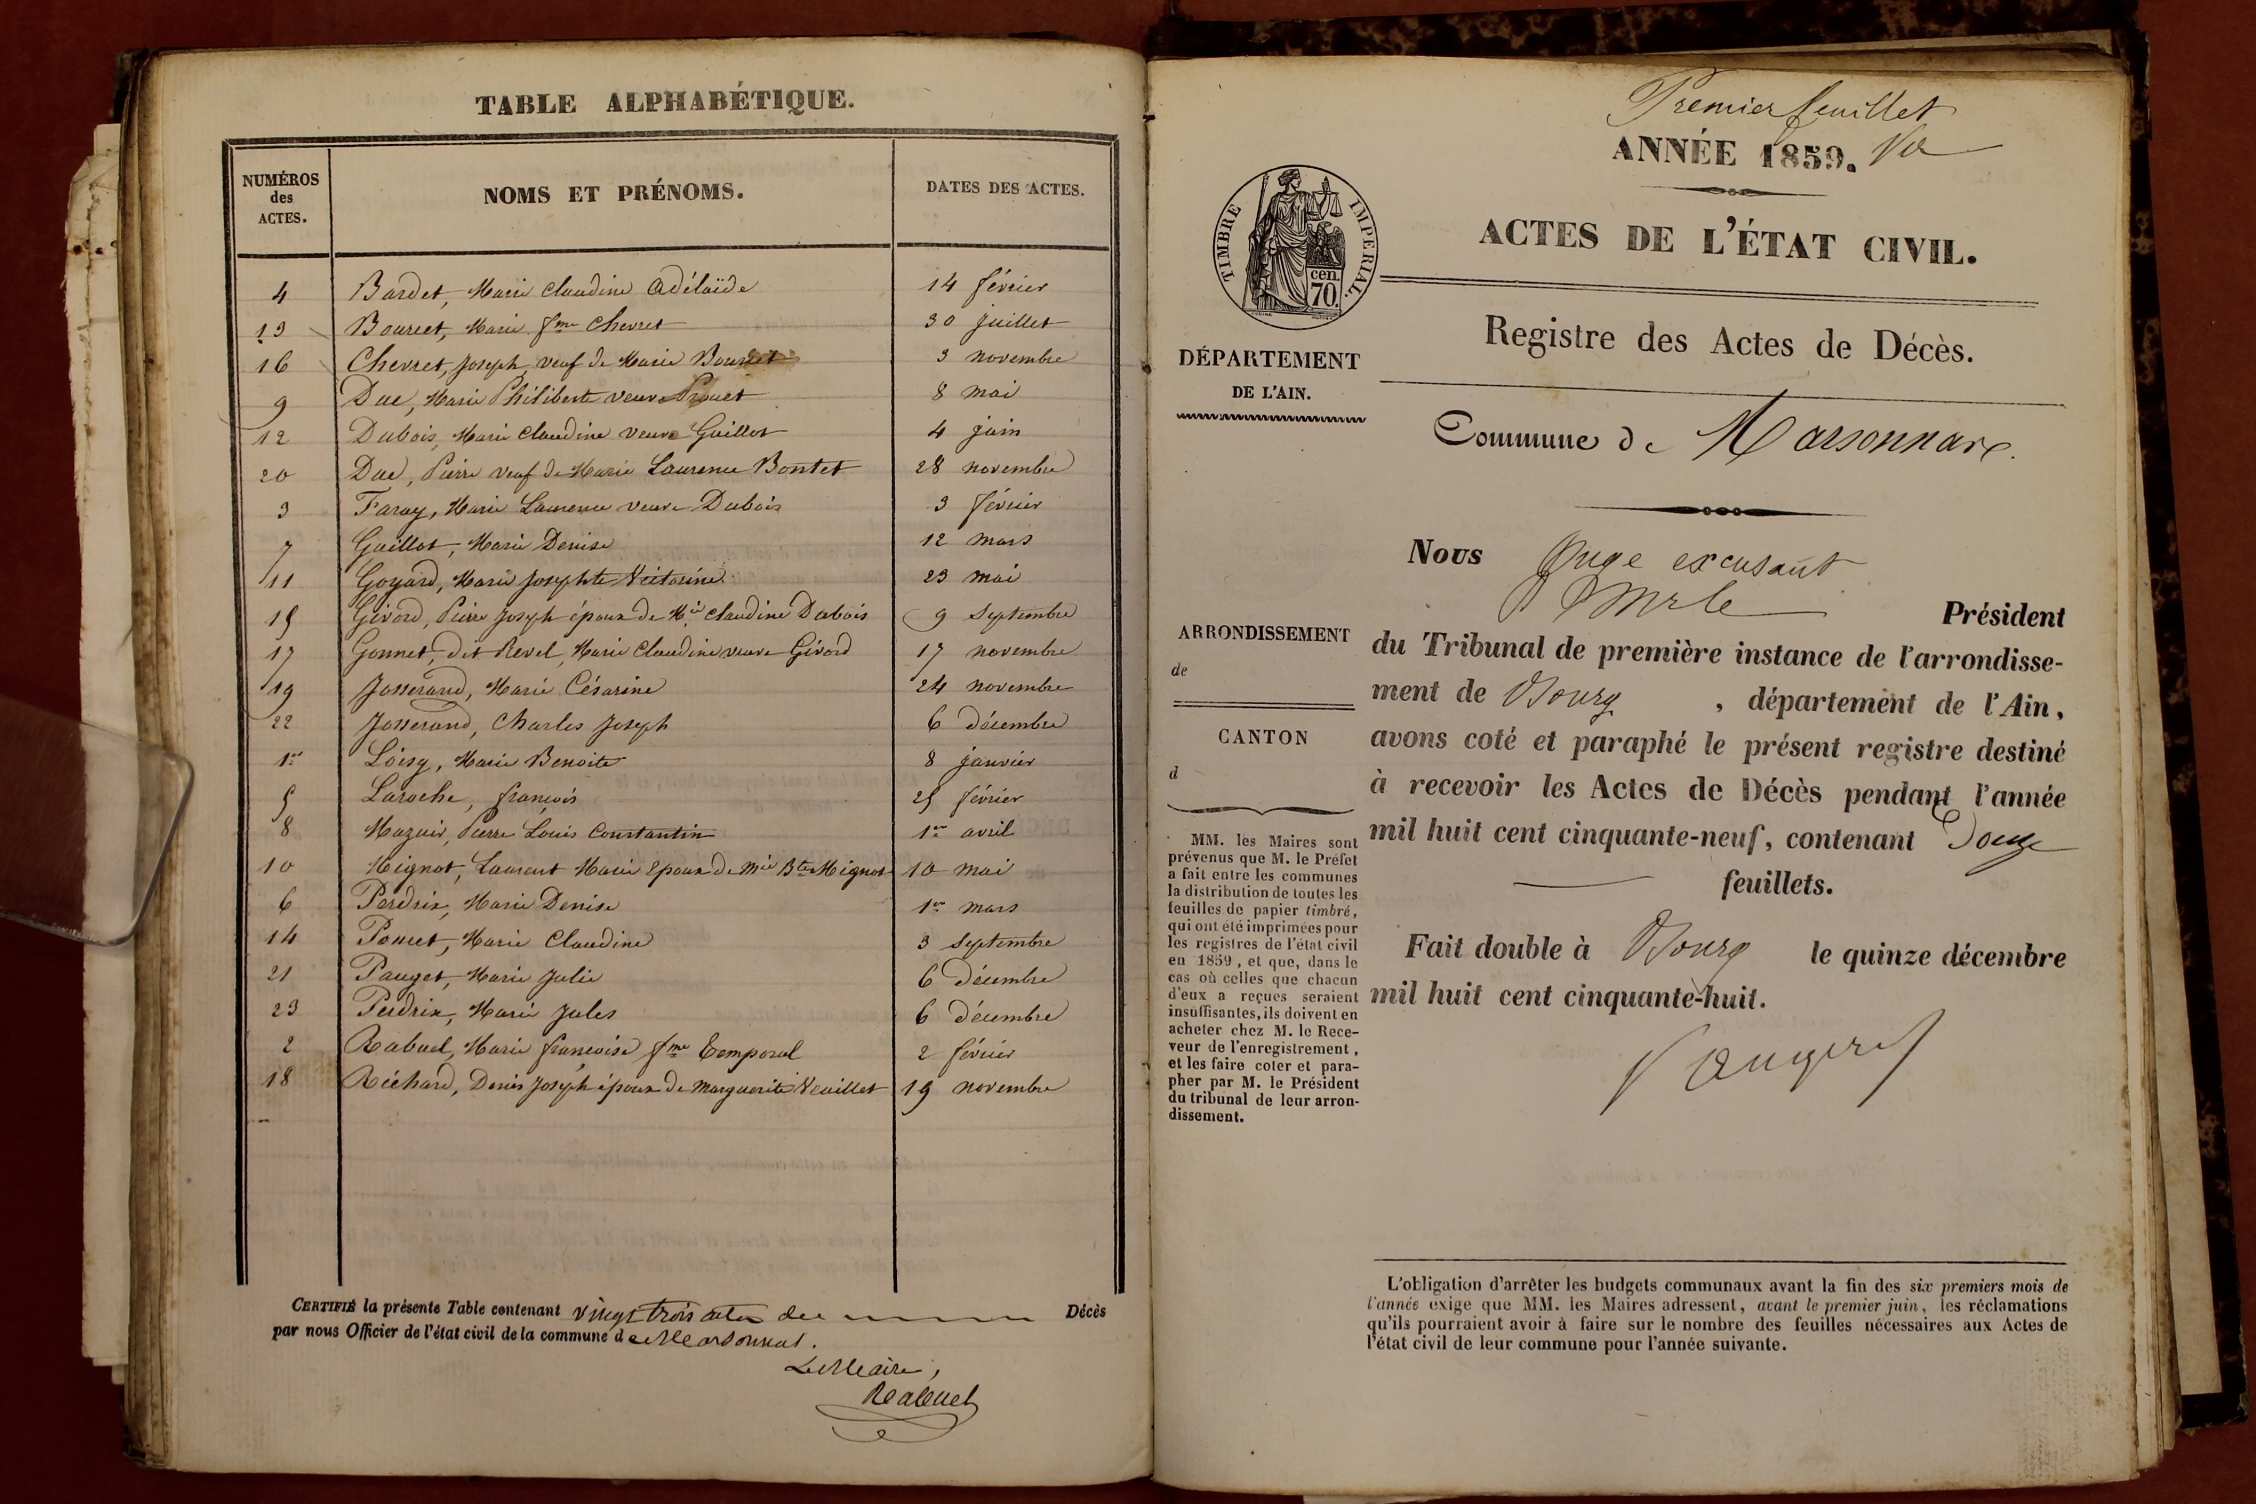 TABLE ALPHABÉTIQUE.
NUMÉROS
des
ACTES.
NOMS ET PRÉNOMS.
DATES DES ACTES.
4 Bardet, Marie Claudine Adélaïde 14 février
13 Bourcet, Marie fme Chevret 30 juillet
16 Chevret, Joseph veuf de Marie Bourcet 3 novembre
9 Duc, Marie Philiberte veuve Prouet 8 mai
12 Dubois, Marie Claudine veuve Guillot 4 juin
20 Duc, Pierre veuf de Marie Laurence Bontet 28 novembre
3 Faray, Marie Laurence veuve Dubois 3 février
7 Guillot, Marie Denise 12 mars
11 Goyard, Marie Josephte Victorine 23 mai
15 Givord, Pierre Joseph époux de Mie Claudine Dubois 9 septembre
17 Gonnet, dit Revel, Marie Claudine veuve Givord 17 novembre
19 Josserand, Marie Césarine 24 novembre
22 Josserand, Charles Joseph 6 décembre
1er Loisy, Marie Benoite 8 janvier
5 Laroche, françois 25 février
8 Mazuir, Pierre Louis Constantin 1er avril
10 Mignot, Laurent Marie Epoux de Mie Bte Mignot 10 mai
6 Perdrix, Marie Denise 1er mars
14 Poncet, Marie Claudine 3 septembre
21 Pauget, Marie Julie 6 décembre
23 Perdrix, Marie Jules 6 décembre
2 Rabuel, Marie françoise fme Temporal 2 février
18 Réchard, Denis Joseph époux de Marguerite Veuillet 19 novembre
CERTIFIÉ la présente Table contenant vingt trois actes de Décès
par nous Officier de l'état civil de la commune de Marsonnas.
Le Maire,
Rabuel
Premier feuillet
ANNÉE 1859.
TIMBRE IMPERIAL.
cen.
70.
ACTES DE L'ÉTAT CIVIL.
Registre des Actes de Décès.
DÉPARTEMENT
DE L'AIN.
Commune de Marsonnas.
Nous Juge excusant
Président
du Tribunal de première instance de l'arrondisse-
ment de Bourg, département de l'Ain,
avons coté et paraphé le présent registre destiné
à recevoir les Actes de Décès pendant l'année
mil huit cent cinquante-neuf, contenant Douze
feuillets.
Fait double à Bourg le quinze décembre
mil huit cent cinquante-huit.
ARRONDISSEMENT
de
CANTON
d
MM. les Maires sont
prévenus que M. le Préfet
a fait entre les communes
la distribution de toutes les
feuilles de papier timbré,
qui ont été imprimées pour
les registres de l'état civil
en 1859, et que, dans le
cas où celles que chacun
d'eux a reçues seraient
insuffisantes, ils doivent en
acheter chez M. le Rece-
veur de l'enregistrement,
et les faire coter et para-
pher par M. le Président
du tribunal de leur arron-
dissement.
L'obligation d'arrêter les budgets communaux avant la fin des six premiers mois de
l'année exige que MM. les Maires adressent, avant le premier juin, les réclamations
qu'ils pourraient avoir à faire sur le nombre des feuilles nécessaires aux Actes de
l'état civil de leur commune pour l'année suivante.